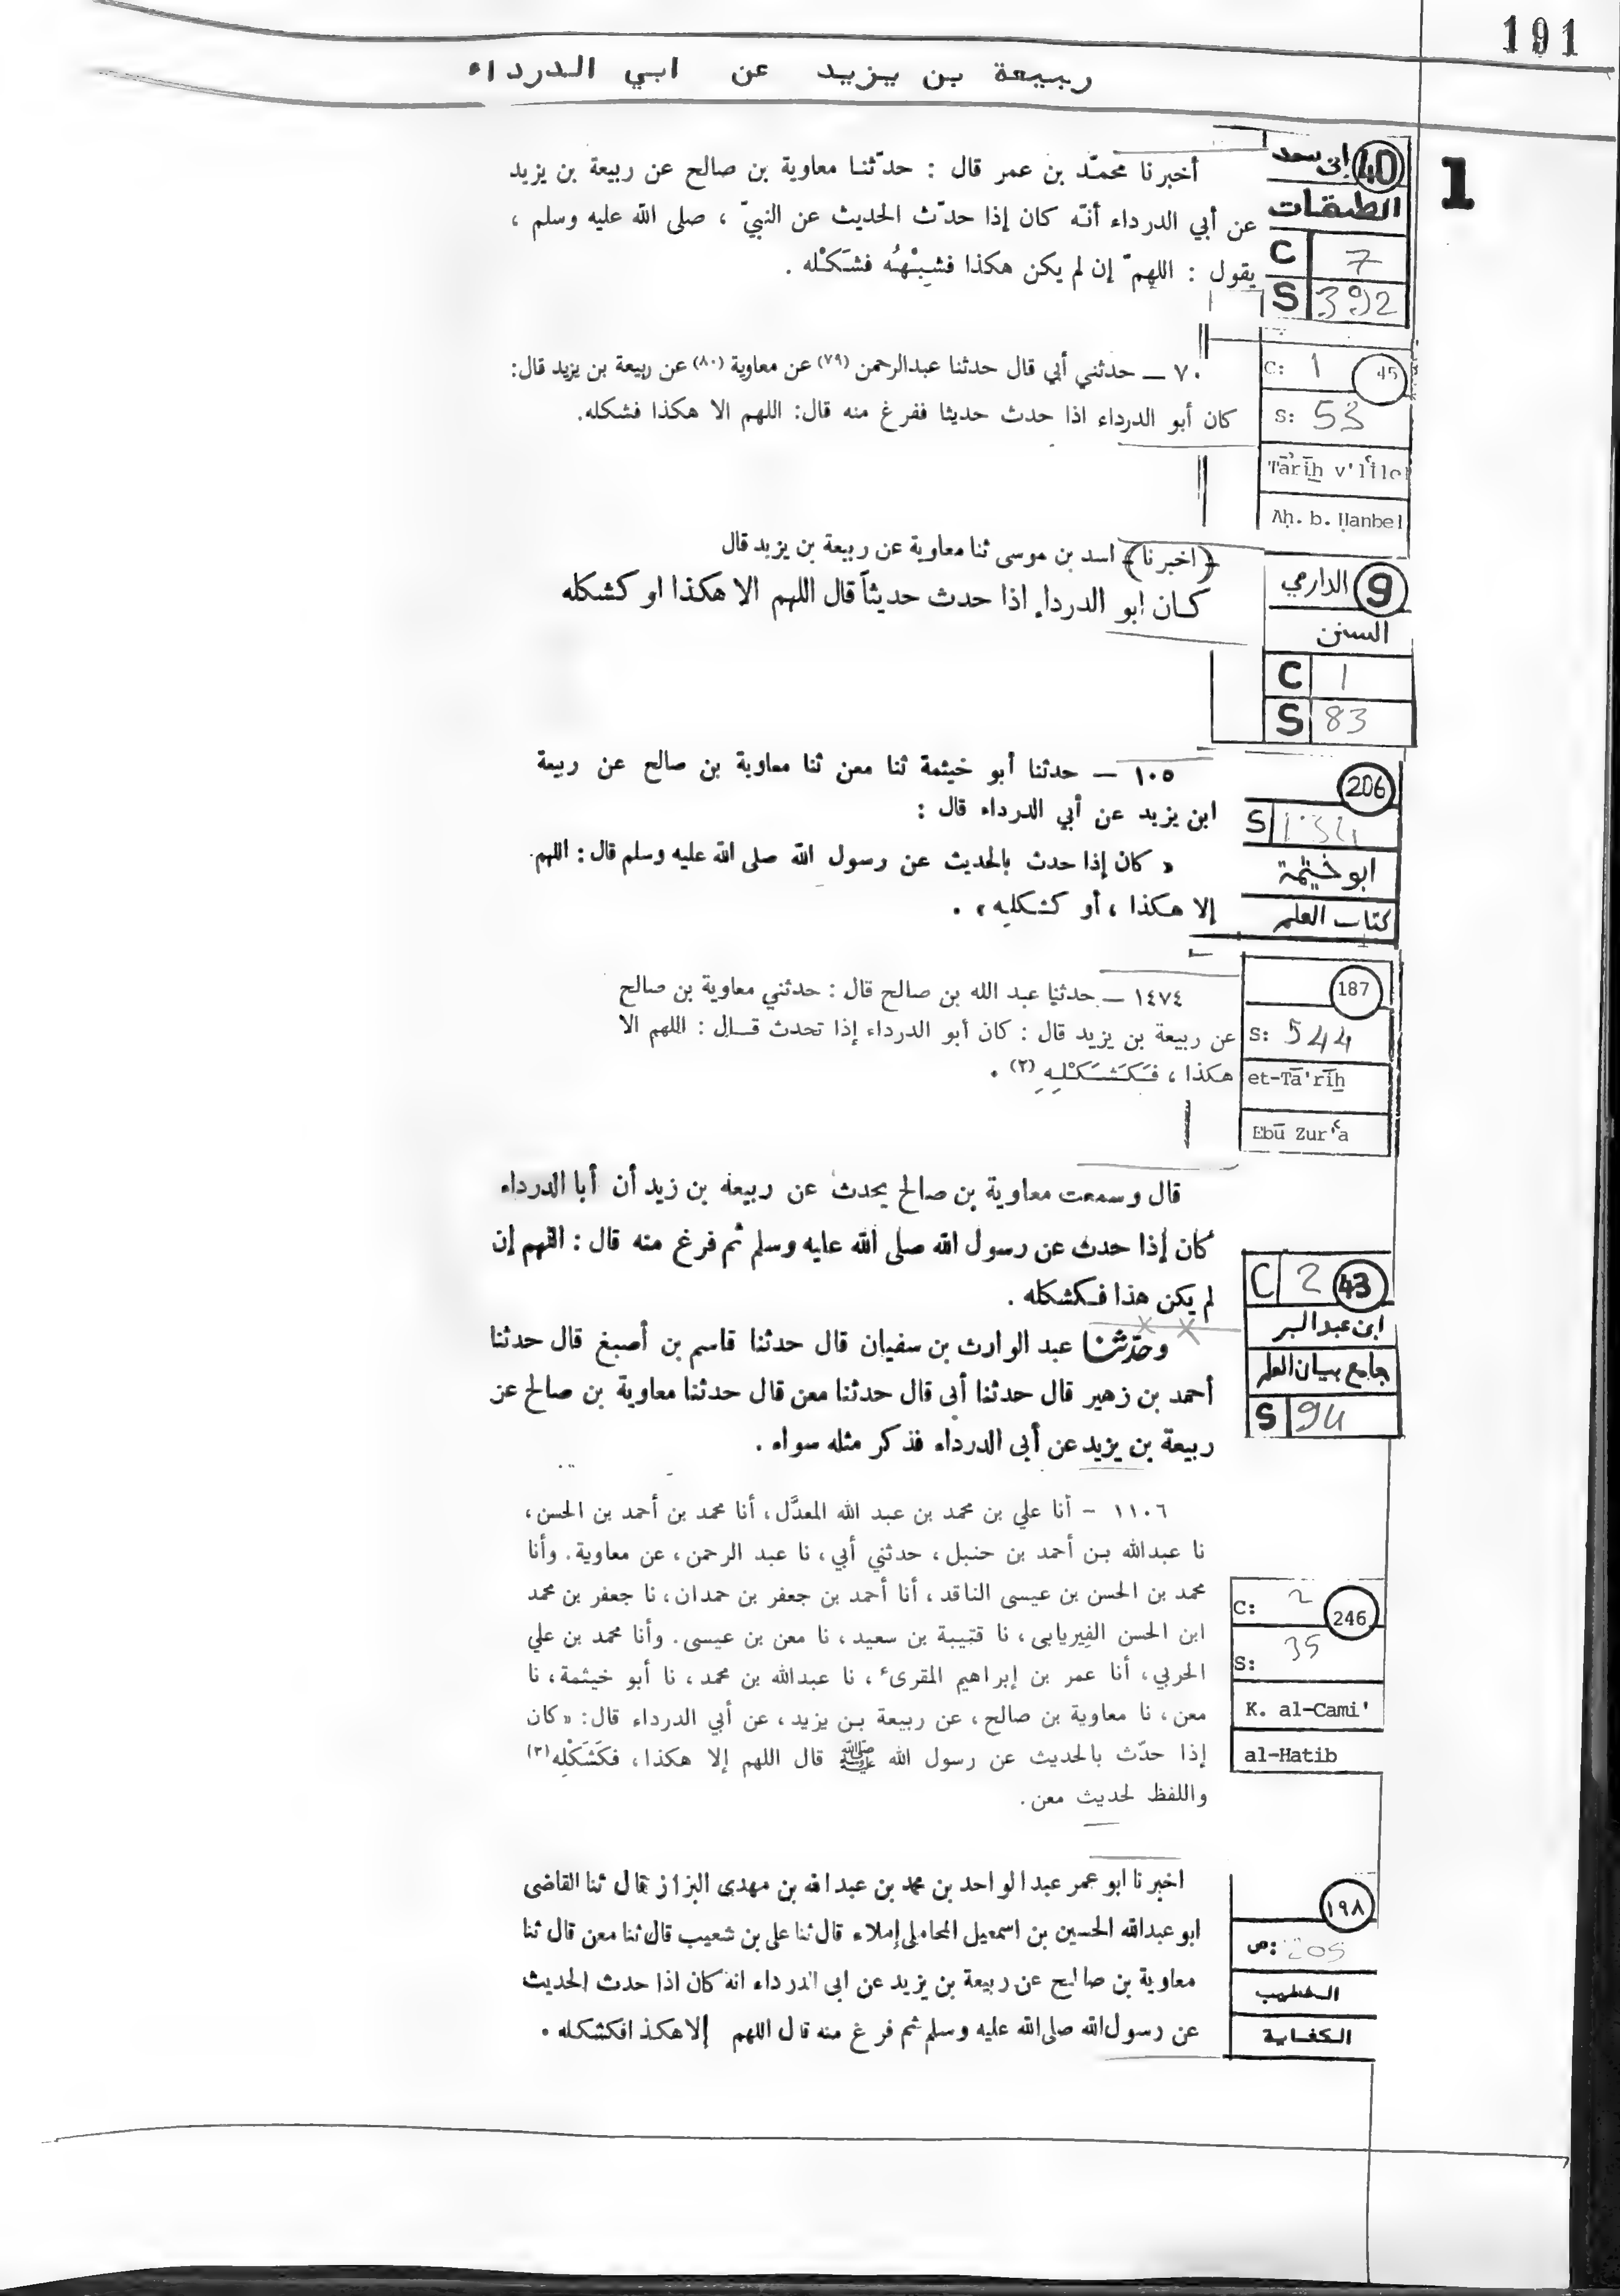 191
ربيعة بن يزيد عن ابي الدرداء
1
40 ابن سعد
الطبقات
C 7
S 392
أخبرنا محمّد بن عمر قال : حدّثنا معاوية بن صالح عن ربيعة بن يزيد
عن أبي الدرداء أنّه كان إذا حدّث الحديث عن النبيّ ، صلى الله عليه وسلم ،
يقول : اللهمّ إن لم يكن هكذا فشِبْهُه فشَكْله .
C: 1 45
S: 53
Tārīḫ v'l
Aḥ. b. Ḥanbel
٧٠ ــ حدثني أبي قال حدثنا عبدالرحمن (٧٩) عن معاوية (٨٠) عن ربيعة بن يزيد قال:
كان أبو الدرداء اذا حدث حديثا ففرغ منه قال: اللهم الا هكذا فشكله.
9 الدارمي
السنن
C 1
S 83
(اخبرنا) اسد بن موسى ثنا معاوية عن ربيعة بن يزيد قال
كان ابو الدرداء اذا حدث حديثاً قال اللهم الا هكذا او كشكله
206
S
ابو خيثمة
كتاب العلم
١٠٥ – حدثنا أبو خيثمة ثنا معن ثنا معاوية بن صالح عن ربيعة
ابن يزيد عن أبي الدرداء قال :
« كان إذا حدث بالحديث عن رسول الله صلى الله عليه وسلم قال : اللهم
إلا هكذا ، أو كشكله » .
187
S: 544
et-Tā'rīḫ
Ebū Zur'a
١٤٧٤ – حدثنا عبد الله بن صالح قال : حدثني معاوية بن صالح
عن ربيعة بن يزيد قال : كان أبو الدرداء إذا تحدث قال : اللهم الا
هكذا ، فَكَشَكْلِهِ (٢) .
C 2 43
ابن عبد البر
جامع بيان العلم
S 94
قال وسمعت معاوية بن صالح يحدث عن ربيعة بن زيد أن أبا الدرداء
كان إذا حدث عن رسول الله صلى الله عليه وسلم ثم فرغ منه قال : اللهم إن
لم يكن هذا فكشكله .
وحدّثنا عبد الوارث بن سفيان قال حدثنا قاسم بن أصبغ قال حدثنا
أحمد بن زهير قال حدثنا أبى قال حدثنا معن قال حدثنا معاوية بن صالح عن
ربيعة بن يزيد عن أبى الدرداء فذكر مثله سواء .
C: 2 246
S: 35
K. al-Cami'
al-Hatib
١١٠٦ - أنا علي بن محمد بن عبد الله المعدَّل، أنا محمد بن أحمد بن الحسن،
نا عبدالله بن أحمد بن حنبل، حدثني أبي، نا عبد الرحمن، عن معاوية. وأنا
محمد بن الحسن بن عيسى الناقد، أنا أحمد بن جعفر بن حمدان، نا جعفر بن محمد
ابن الحسن الفيريابى، نا قتيبة بن سعيد، نا معن بن عيسى. وأنا محمد بن علي
الحربي، أنا عمر بن إبراهيم المقرىء، نا عبدالله بن محمد، نا أبو خيثمة، نا
معن، نا معاوية بن صالح، عن ربيعة بن يزيد، عن أبي الدرداء قال: «كان
إذا حدّث بالحديث عن رسول الله ﷺ قال اللهم إلا هكذا، فكَشَكْلِه(٣)
واللفظ لحديث معن.
١٩٨
ص: 205
الخطيب
الكفاية
اخبرنا ابو عمر عبد الواحد بن محمد بن عبد الله بن مهدى البزاز قال ثنا القاضى
ابو عبدالله الحسين بن اسمعيل المحاملى إملاء قال ثنا على بن شعيب قال ثنا معن قال ثنا
معاوية بن صالح عن ربيعة بن يزيد عن ابى الدرداء انه كان اذا حدث الحديث
عن رسول الله صلى الله عليه وسلم ثم فرغ منه قال اللهم إلا هكذا فكشكله .